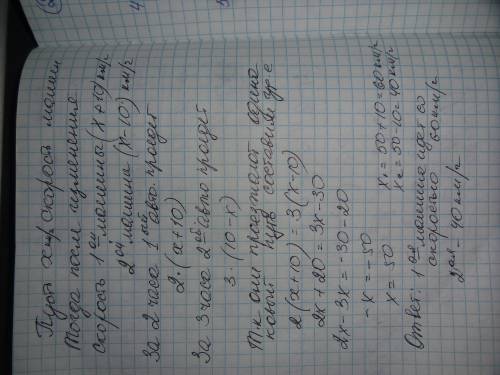 Пусть х км/ч скорость машин
Тогда после изменения
скорость 1ой машины (х+10) км/г
2ой машина (х-10) км/г
За 2 часа 1ый авто. проедет
2·(х+10)
За 3 часа 2ой авто проедет
3·(10-х)
Т.к они проезжают одина-
ковый путь составим ур-е
2(х+10) = 3(х-10)
2х + 20 = 3х - 30
2х - 3х = -30 - 20
-х = -50
х = 50
х₁ = 50+10 = 60 км/г
х₂ = 50-10 = 40 км/г
Ответ: 1ая машина идет со
скоростью 60 км/г
2ая - 40 км/г